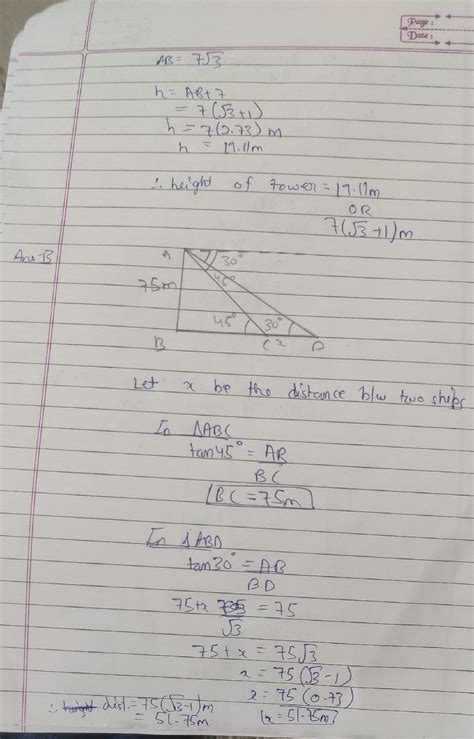 Page :
Date :
AB = 7√3
h = AB+7
= 7(√3+1)
h = 7(2.73) m
h = 19.11m
∴ height of tower = 19.11m
OR
7(√3+1)m
Ans-13
A
30°
45°
75m
45°
30°
B
C
x
D
Let x be the distance b/w two ships
In ΔABC
tan45° = AB
BC
BC = 75m
In ΔABD
tan30° = AB
BD
75+x = 75
√3
75+x = 75√3
x = 75(√3-1)
x = 75(0.73)
∴ height dist. = 75(√3-1)m
= 51.75m
(x = 51.75m)